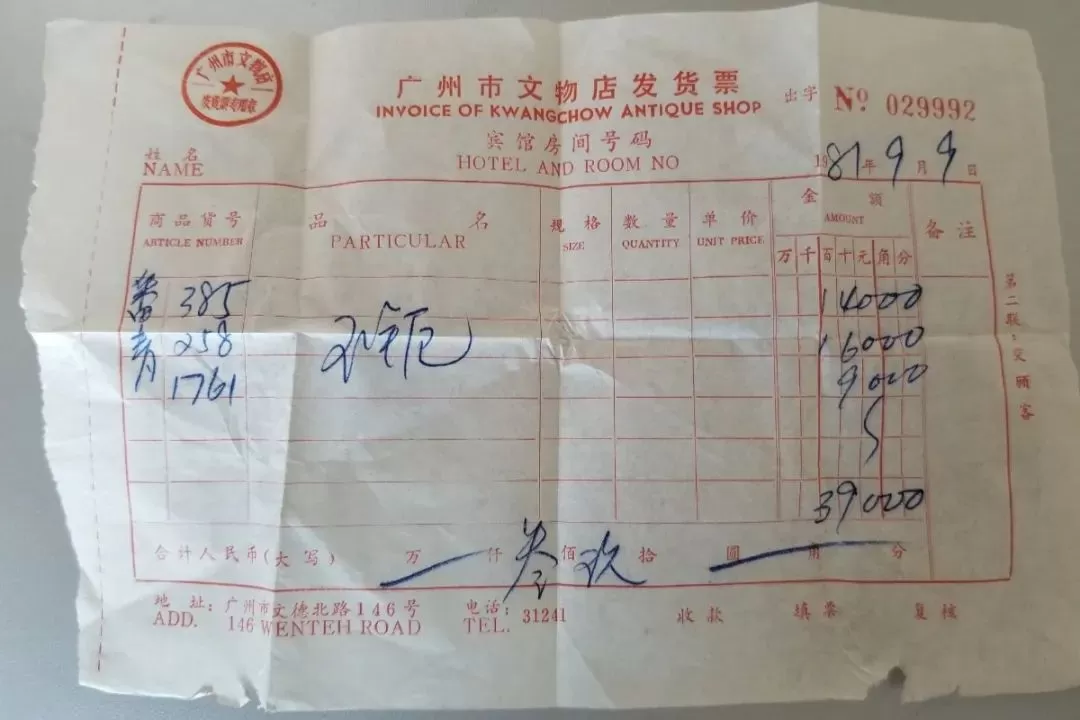 广州市文物店
发货票专用章
广州市文物店发货票
INVOICE OF KWANGCHOW ANTIQUE SHOP
出字 No 029992
宾馆房间号码
HOTEL AND ROOM NO
姓名
NAME
1981年9月9日
商品货号 品名 规格 数量 单价 金额 备注
ARTICLE NUMBER PARTICULAR SIZE QUANTITY UNIT PRICE AMOUNT
万千百十元角分
385 14000
258 16000
1761 9000
39000
合计人民币(大写) 万 仟 叁 佰 玖 拾 圆 角 分
地址: 广州市文德北路146号 电话: 31241 收款 填票 复核
ADD. 146 WENTEH ROAD TEL.
第二联:交顾客